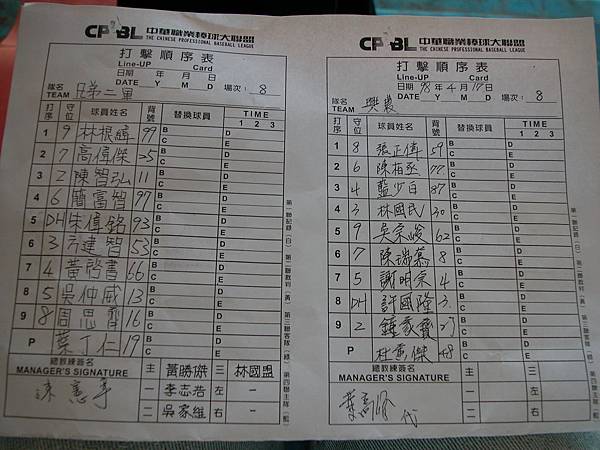 CPBL 中華職業棒球大聯盟
THE CHINESE PROFESSIONAL BASEBALL LEAGUE
打擊順序表
Line-UP Card
日期 年 月 日
DATE Y M D 場次: 8
隊名 TEAM 兄弟二軍
打序 守位 球員姓名 背號 替換球員 TIME 1 2 3
1 9 林根緯 99 B C D E
2 7 高偉傑 25 B C D E
3 2 陳智弘 11 B C D E
4 6 簡富智 97 B C D E
5 DH 朱偉銘 93 B C D E
6 3 方建智 53 B C D E
7 4 黃啓書 66 B C D E
8 5 吳仲威 13 B C D E
9 8 周思齊 16 B C D E
P 葉丁仁 19 B C D E
總教練簽名
MANAGER'S SIGNATURE
主 黃勝傑 三 林國盟
一 李志浩 左 一
二 吳家維 右 一
第一聯記錄(白) 第二聯裁判(黃) 第三聯客隊(綠) 第四聯主隊(藍)
CPBL 中華職業棒球大聯盟
THE CHINESE PROFESSIONAL BASEBALL LEAGUE
打擊順序表
Line-UP Card
日期 98 年 4 月 17 日
DATE Y M D 場次: 8
隊名 TEAM 興農
打序 守位 球員姓名 背號 替換球員 TIME 1 2 3
1 8 張正偉 59 B C D E
2 6 陳柏丞 77 B C D E
3 4 藍少白 87 B C D E
4 3 林國民 30 B C D E
5 9 吳宗峻 62 B C D E
6 7 陳瑞慕 8 B C D E
7 5 謝明宗 4 B C D E
8 DH 許國隆 3 B C D E
9 2 鍾豪寶 27 B C D E
P 杜章傑 48 B C D E
總教練簽名
MANAGER'S SIGNATURE
主 三
一 左
二 右
代
第一聯記錄(白) 第二聯裁判(黃) 第三聯客隊(綠) 第四聯主隊(藍)